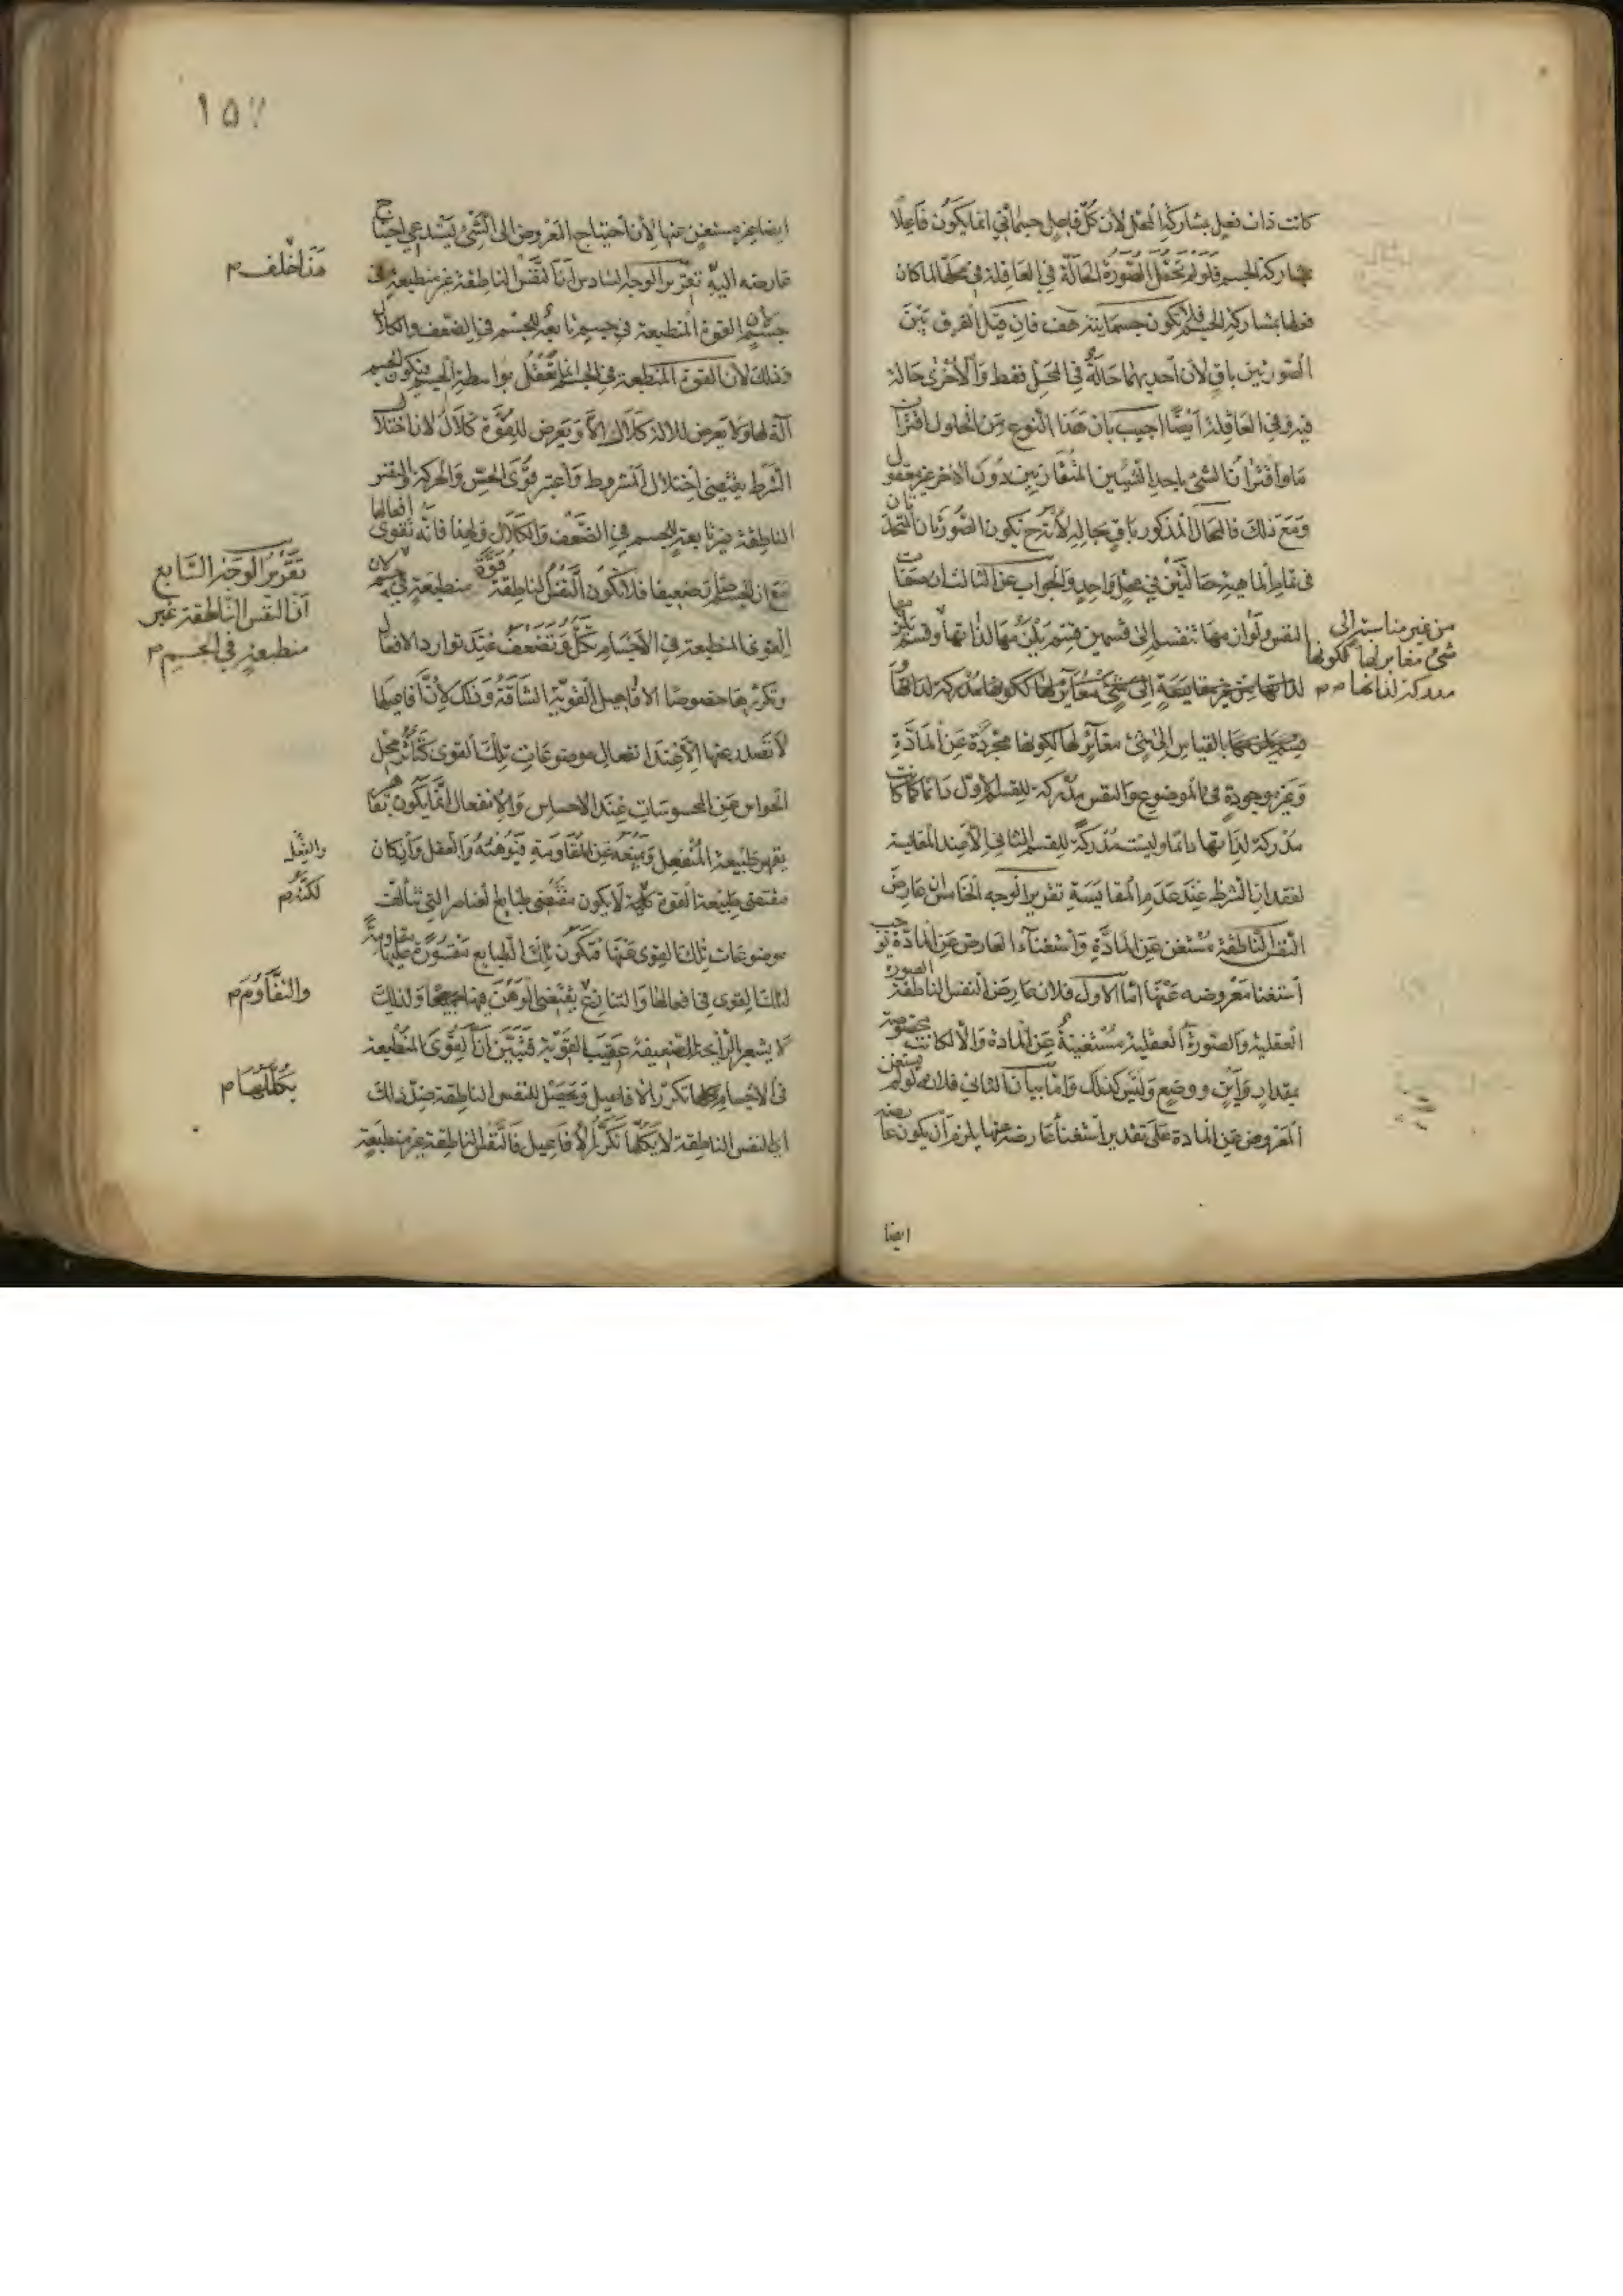 كانت ذات فعل بمشاركة المحل لأن كل فاعل جسماني انما يكون فاعلا
بمشاركة الجسم فلو لم تحصل الصورة الحالة في العاقلة في محلها لما كان
فعلها بمشاركة الجسم فلا تكون جسمانية هف فان قيل الفرق بين
الصورتين باق لأن احديهما حالة في المحل فقط والأخرى حالة
فيه وفي العاقلة أيضا اجيب بان هذا النوع من الحلول اقتران
ما واقتران الشئ باحد الشيئين المتقارنين دون الاخر غير معقول
ومع ذلك فالمحال المذكور باق بحاله لأن ح تكون الصورتان المتحدتان
في تمام الماهية حالتين في محل واحد والجواب عن الثالث ان صفات
النفس ولوازمها تنقسم الى قسمين قسم يلزمها لذاتها وقسم يلزمها
من غير مناسبة الى
شئ مغاير لها لكونها
مدركة لذاتها م
لذاتها من غير مقايسة الى شئ مغاير لها لككونها مدركة لذاتها
بالقياس الى شئ مغاير لها لكونها مجردة عن المادة
وغير موجودة في الموضوع والنفس مدركة للقسم الأول دائما كما كانت
مدركة لذاتها دائما وليست مدركة للقسم الثاني الا عند المقايسة
لفقدان الشرط عند عدم المقايسة تقرير الوجه الخامس ان عارض
النفس الناطقة مستغن عن المادة واستغناء العارض عن المادة يوجب
استغنا معروضه عنها اما الأول فلان عارض النفس الناطقة الصورة
العقلية والصورة العقلية مستغنية عن المادة والا لكانت مخصوصة
بمقدار وأين ووضع وليس كذلك واما بيان الثاني فلانه لو لم يستغن
المعروض عن المادة على تقدير استغنا عارضه عنها يلزم أن يكون عارضه
ايضا
١٥٧
ايضا غير مستغن عنها لأن احتياج المعروض الى الشئ يستدعي احتياج
عارضه اليه تقرير الوجه السادس أن النفس الناطقة غير منطبعة في
هذا خلف م
جسم لان القوة المنطبعة في جسم تابعة للجسم في الضعف والكلال
وذلك لأن القوة المنطبعة في الجسم انما تفعل بواسطة الجسم فيكون الجسم
آلة لها ولا يعرض للالة كلال الا ويعرض للقوة كلال لان اختلال
الشرط يقتضي اختلال المشروط واعتبر قوى الحس والحركة والنفس
الناطقة غير تابعة للجسم في الضعف والكلال ولهذا فانه تقوى افعالها
مع ان الجسم ضعيفا فلا تكون النفس الناطقة قوة منطبعة في جسم لان
تقرير الوجه السابع
أن النفس الناطقة غير
منطبعة في الجسم م
القوى المنطبعة في الأجسام تكل وتضعف عند توارد الافعال
وتكررها خصوصا الافاعيل القوية الشاقة وذلك لأن أفاعيلها
لا تصدر عنها الا عند انفعال موضوعات تلك القوى كتأثر محل
الحواس عن المحسوسات عند الاحساس والانفعال انما يكون بقاهر
يقهر طبيعة المنفعل ويمنعه عن المقاومة فيوهنه والفعل وأن كان
والفعل
مقتضى طبيعة القوة لا يكون مقتضى طبايع العناصر التي تتألف
لكنه م
موضوعات تلك القوى عنها فتكون تلك الطبايع مقسورة عليها مقاومة
لتلك القوى في افعالها والتنازع يقتضي الوهن فيها جميعا ولذلك
والتقاوم م
لا يشعر الرايحة الضعيفة عقيب القوية فتبين أن القوى المنطبعة
في الأجسام تكرر الأفاعيل وتحصل للنفس الناطقة ضد ذلك
يكللها م
اي النفس الناطقة لا يكلها تكرر الأفاعيل فالنفس الناطقة غير منطبعة